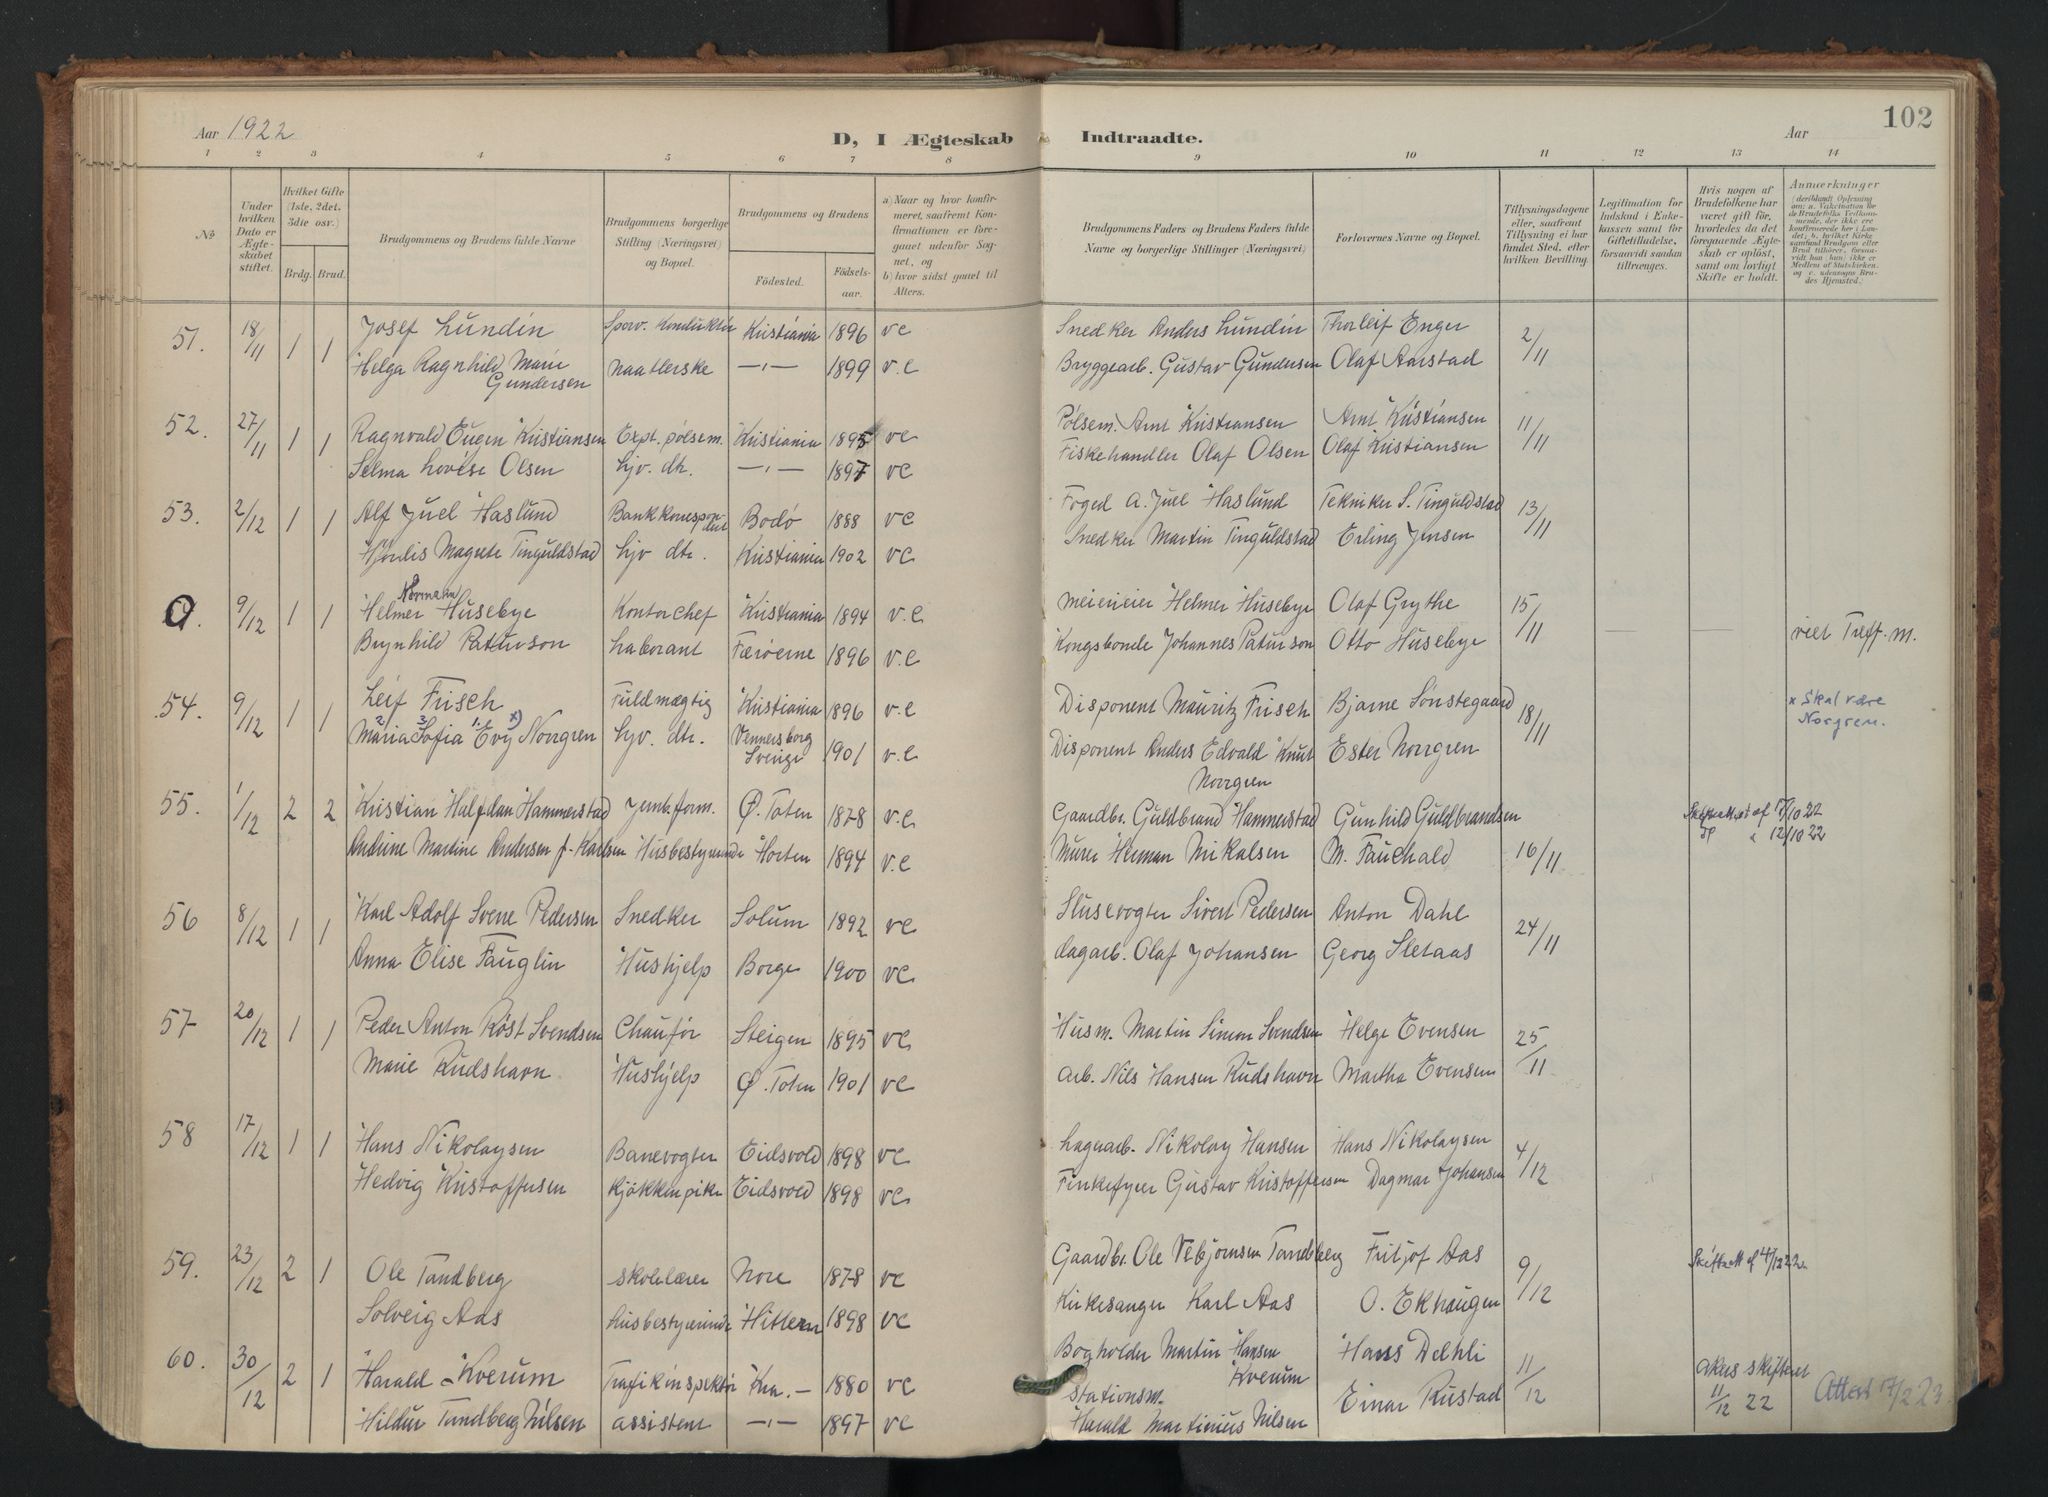 Aar 1922
D, I Ægteskab Indtraadte.
Aar
102
1 2 3 4 5 6 7 8 9 10 11 12 13 14
№
Under hvilken Dato er Ægteskabet stiftet.
Hvilket Gifte (1ste, 2det, 3die osv.)
Brdg. Brud.
Brudgommens og Brudens fulde Navne
Brudgommens borgerlige Stilling (Næringsvei) og Bopæl.
Brudgommens og Brudens
Fødested. Fødselsaar.
a) Naar og hvor konfirmeret, saafremt Konfirmationen er foregaaet udenfor Sognet, og
b) hvor sidst gaaet til Alters.
Brudgommens Faders og Brudens Faders fulde Navne og borgerlige Stillinger (Næringsvei)
Forlovernes Navne og Bopæl.
Tillysningsdagene eller, saafremt Tillysning ei har fundet Sted, efter hvilken Bevilling.
Legitimation for Indskud i Enkekassen samt for Giftetilladelse, forsaavidt saadan tiltrænges.
Hvis nogen af Brudefolkene har været gift før, hvorledes da det foregaaende Ægteskab er opløst, samt om lovligt Skifte er holdt.
Anmærkninger
51. 18/11 1 1 Josef Lundin Sporv. Konduktør Kristiania 1896 vc Snedker Anders Lundin Thorleif Enger 2/11
Helga Ragnhild Marie Naatlerske —„— 1899 v.c Bryggearb. Gustav Gundersen Olaf Aarstad
Gundersen
52. 27/11 1 1 Ragnvald Eugen Kristiansen Expt. pølsem. Kristiania 1895 vc Pølsem. Arnt Kristiansen Arnt Kristiansen 11/11
Selma Lovise Olsen Hjv. dtr. —„— 1897 vc Fiskehandler Olaf Olsen Olaf Kristiansen
53. 2/12 1 1 Alf Juel Haslund Bankkorespondent Bodø 1888 vc Foged A. Juel Haslund Tekniker S. Tinguldstad 13/11
Hjørdis Magrete Tinguldstad Hjv dtr. Kristiania 1902 vc Snedker Martin Tinguldstad Erling Jensen
Normann
a. 9/12 1 1 Helmer Husebye Kontorchef Kristiania 1894 v.c Meieri eier Helmer Husebye Olaf Grythe 15/11 — — viet Treff. m.
Brynhild Patursson Laborant Færøerne 1896 v.c Kongsbonde Johannes Patursson Otto Husebye
54. 9/12 1 1 Leif Frisch Fuldmægtig Kristiania 1896 v.c Disponent Mauritz Frisch Bjarne Sønstegaard 18/11 x Skal være
2 3 1. x)
Maria Sofia Evy Norrgren Hjv. dtr. Vennersborg 1901 v.c Disponent Anders Edvald Knut Ester Norrgren Norgren.
Sverige Norrgren
55. 1/12 2 2 Kristian Halfdan Hammerstad Jernb.form. Ø. Toten 1878 v.c Gaardbr. Guldbrand Hammerstad Gunhild Guldbrandsen 16/11 Skifteattest af 7/10 22
Andrine Martine Andersen f. Karlsen Husbestyrerinde Horten 1894 v.c Murer Herman Mikalsen M. Fauchald 12/10 22
56 8/12 1 1 Karl Adolf Svene Pedersen Snedker Solum 1892 vc Slusevogter Sivert Pedersen Anton Dahl 24/11
Anna Elise Fauglin Hushjelp Borge 1900 vc dagarb. Olaf Johansen Georg Sletaas
57 20/12 1 1 Peder Anton Røst Svendsen Chaufør Steigen 1895 vc Husm. Martin Simon Svendsen Helge Evensen 25/11
Marie Rudshavn Hushjelp Ø. Toten 1901 vc arb. Nils Hansen Rudshavn Martha Evensen
58 17/12 1 1 Hans Nikolaysen Banevogter Eidsvold 1898 vc Lagearb. Nikolay Hansen Hans Nikolaysen 4/12
Hedvig Kristoffersen Kjøkkenpike Eidsvold 1898 vc Gustav Kristoffersen Dagmar Johansen
59. 23/12 2 1 Ole Tandberg Skolelærer Nore 1878 vc Gaardbr. Ole Vebjørnsen Tandberg Fritjof Aas 9/12 Skifteatt af 4/12 22.
Solveig Aas Husbestyrerinde Hitteren 1898 vc Kirkesanger Karl Aas O. Ekhaugen
60. 30/12 2 1 Harald Kverum Trafikinspektør Kra. — 1880 vc Bogholder Martin Hansen Kverum Hans Dehli 11/12 Akers skifteret 11/12 22 Attest 17/2 23.
Hildur Tandberg Nilsen Assistent —„— 1897 vc Stationsm. Harald Martinius Nilsen Einar Rustad